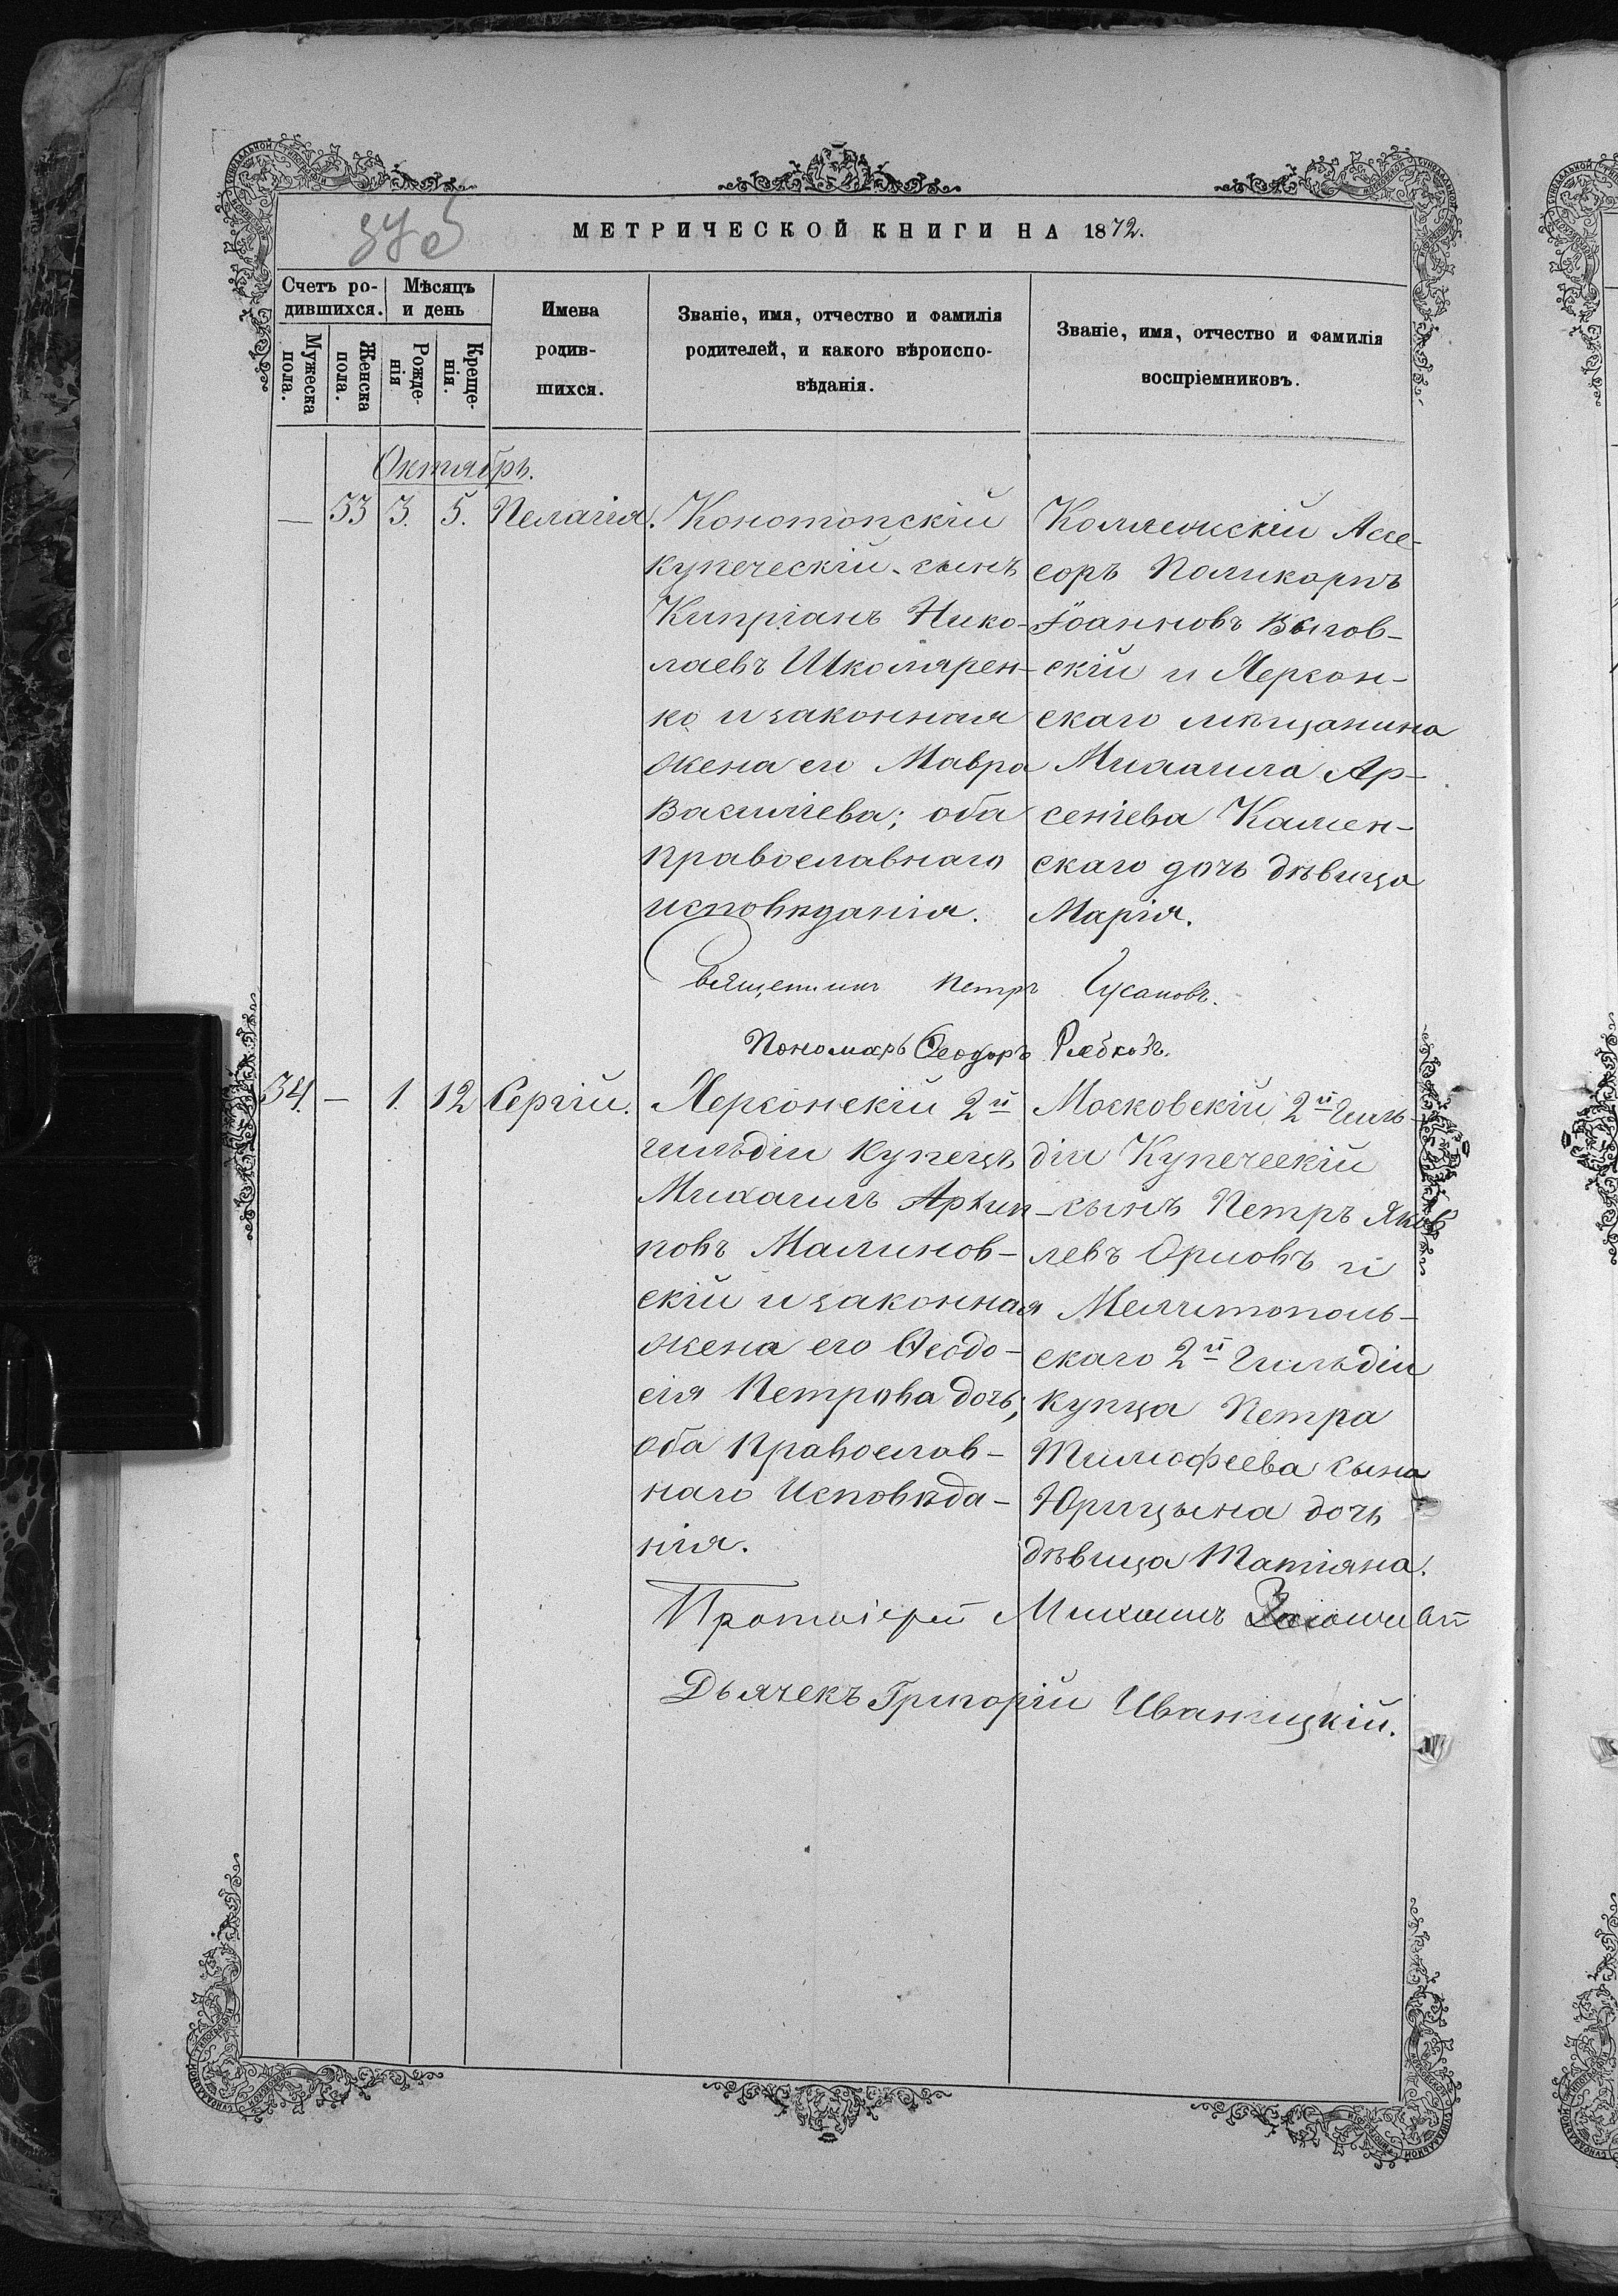 МЕТРИЧЕСКОЙ КНИГИ НА 1872.
Счетъ ро-
дившихся.
Мужеска
пола.
Женска
пола.
Мѣсяцъ
и день
Рожде-
нія
Креще-
нія.
Имена
родив-
шихся.
Званіе, имя, отчество и фамилія
родителей, и какого вѣроиспо-
вѣданія.
Званіе, имя, отчество и фамилія
воспріемниковъ.
Октябрь.
— 33 3. 5. Пелагія.
Конотопскій
купеческій сынъ
Кипріанъ Нико-
лаевъ Школярен-
ко и законная
жена его Мавра
Василіева; оба
православнаго
исповѣданія.
Коллежскій Ассе-
соръ Поликарпъ
Іоанновъ Выгов-
скій и Херсон-
скаго мѣщанина
Михаила Ар-
сеніева Камен-
скаго дочь дѣвица
Марія.
Священникъ Петръ
Пономарь Ѳеодоръ
34. — 1. 12 Сергій.
Херсонскій 2й
гильдіи купецъ
Михаилъ Архип-
повъ Малинов-
скій и законная
жена его Ѳеодо-
сія Петрова дочь;
оба Православ-
наго Исповѣда-
нія.
Московскій 2й Гиль-
діи Купеческій
сынъ Петръ Яков
левъ Орловъ и
Мелитополь-
скаго 2й Гильдіи
купца Петра
Тимофеева сына
Юрицына дочь
дѣвица Татіяна.
Протоіерей Михаилъ
Дьячекъ Григорій Иваницкій.